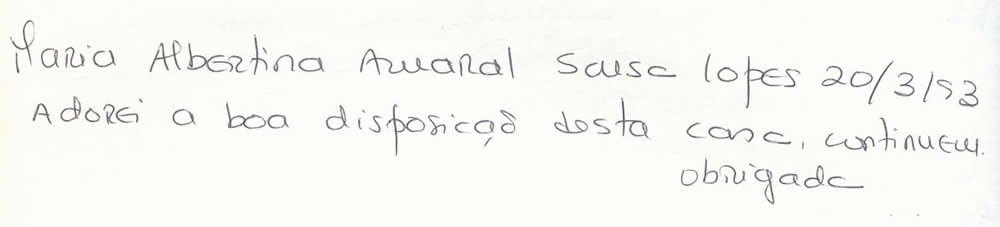 Maria Albertina Amaral Sousa Lopes 20/3/93
Adorei a boa disposição desta casa, continuem.
obrigada